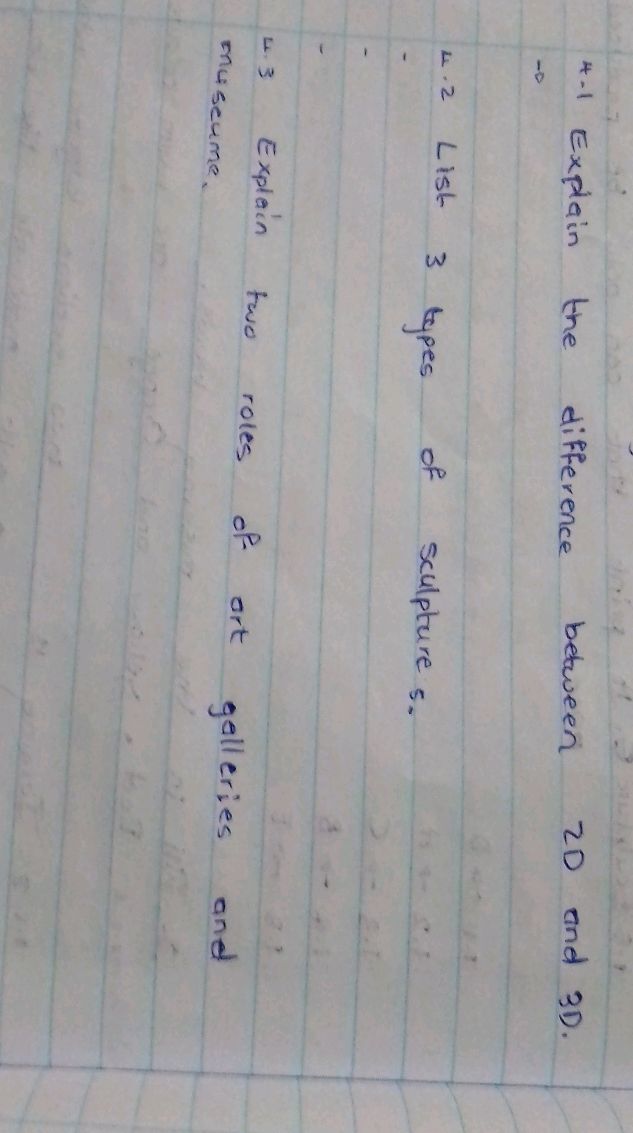 4.1 Explain the difference between 2D and 3D.
→
4.2 List 3 types of sculptures.
-
-
-
4.3 Explain two roles of art galleries and
museums.